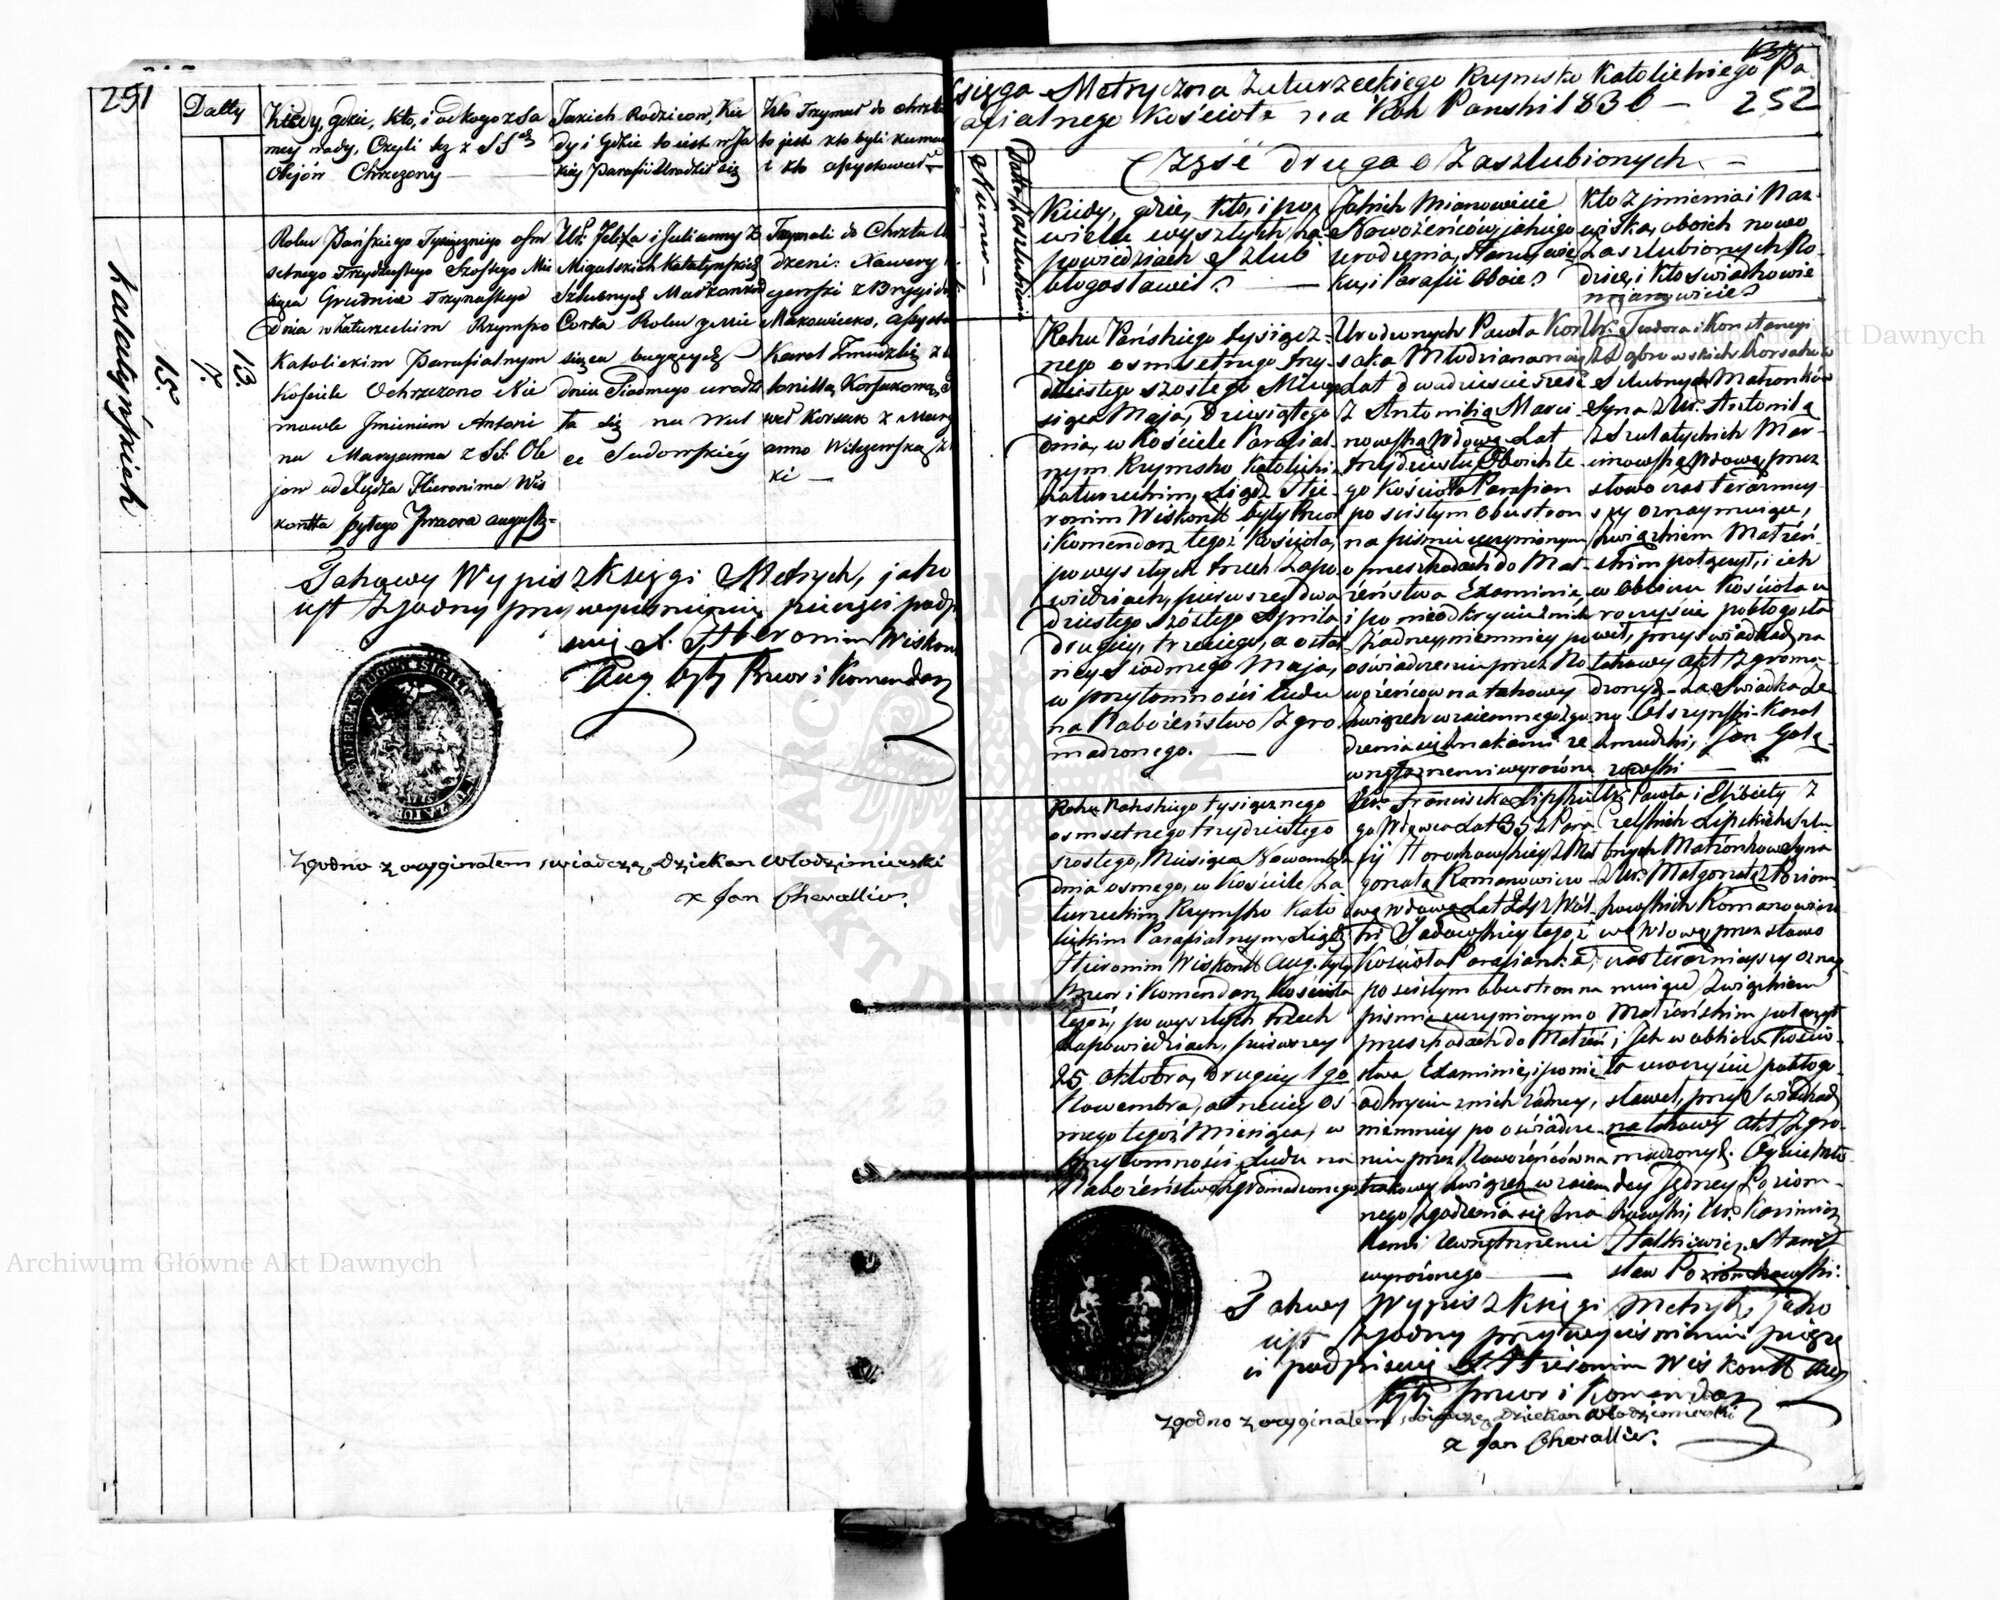 291
Datty
Kiedy, gdzie, kto, i od kogo z Sa
mey wody, Czyli też z SSch
Olejów Chrzczony
Jakich Rodziców, Kie
dy i Gdzie to iest w Ja
kiej Parafii Urodził się
Kto Trzymał do chrztu
to jest kto byli kumam
i kto assystował
Katatyńskich
15.
7.
13.
Roku Pańskiego Tysiącznego ośm
setnego Trzydziestego Szostego Mie
siąca Grudnia Trzynastego
Dnia w Zaturzeckim Rzymsko
Katolickim Parafialnym
Kościele Ochrzczono Nie
mowle Jmieniem Antoni
na Maryanna z SS. Ole
jow od Xiędza Hieronima Wis
kontta byłego Przeora August.
Ur. Felixa i Julianny z
Migalskich Katatyńskich
Szlubnych Małżonków
Corka Roku z Mie
siąca bieżących
dnia Siodmego urodzi
ła się na Wul
ce Sadowskiéy
Trzymali do Chrztu U
dzeni: Xawery
z Brygidą
Makowiecką, assysto
Karol Żmudzki z
toniną Korsakową,
weł Korsak z Mary
anno Wilczewską
ki —
Takowy Wypis z Księgi Metryk, jako
iest Zgodny przy wyciśnieniu pieczęci podp
isuię X. Hieronim Wiskon
Aug. były Przeor i Komendarz
Zgodno z oryginałem swiadczę, Dziekan Włodzimierski
x Jan Chevallier.
Księga Metryczna Zaturzeckiego Rzymsko Katolickiego Pa
rafialnego Kościoła na Rok Panski 1836 — 252
Część druga o Zaszlubionych —
Numer
Datta Zaszlubienia
Kiedy, gdzie, kto, i po
wielu wyszłych za
powiedziach Szlub
błogosławił?
Jakich Mianowicie
Nowożeńców, jakiego
urodzenia, Stanu, wie
ku, i Parafii Oboie?
Kto z jmienia i Naz-
wiska, oboich nowo
Zaszlubionych Ro
dzice, i kto świadkowie
mianowicie?
Roku Pańskiego tysiącz-
nego osmsetnego trzy
dziestego szóstego Mie
siąca Maja, Dziesiątego
dnia, w Kościele Parafial-
nym Rzymsko Katolickim
Zaturzeckim, Xiądz Hie-
ronim Wiskontt były Przeor
i Komendarz tegoż Kościoła,
po wyszłych trzech Zapo-
wiedziach, pierwszey dwu
dziestego szóstego Aprila
drugiey, trzeciego, a ostat
niey Siodmego Maja,
w przytomności Ludu
na Nabożeństwo Zgro
madzonego. —
Urodzonych Pawła Kor
saka Młodzianaw
Lat dwadzieście sześć
z Antoniną Marci-
nowską Wdową Lat
trzydzieście Oboich te
go Kościoła Parafian
po ścisłym obustron
na piśmie uczynionym
o przeszkodach do Mał-
żeństwa Examinie,
i po nieodkryciu z nich
żadney, niemniey po
oświadczeniu przez No
wożeńców na takowy
Związek wzaiemnego zgo
dzenia się znakami ze
wnętrznemi wyrażone
Ur. Teodora i Konstancyi
z Dąbrowskich Korsaków
Szlubnych Małżonków
Syna z Ur. Antoniną
z Szułatyckich Mar-
cinowską Wdową, przez
słowo czas teraźniey-
szy oznaymuiące,
Związkiem Małżeń
skim połączył, i ich
w obliczu Kościoła u
roczyście pobłogosła
wił, przy świadkach na
takowy Akt Zgroma-
dzonych — Za Świadka Le
on Olszyński, Karol
Żmudzki, Jan Gołę
zowski —
Roku Pańskiego tysiącznego
osmsetnego trzydziestego
szostego, Miesiąca Nowembra
dnia osmego, w Kościele Za-
turzeckim Rzymsko Kato
lickim Parafialnym, Xiądz
Hieronim Wiskontt Aug. były
Przeor i Komendarz Kościoła
tegoż, po wyszłych trzech
Zapowiedziach, pierwszey
25 Oktobra, drugiey 1go
Nowembra, a trzeciey os
mego tegoż Miesiąca, w
przytomności Ludu na
Nabożeństwo Zgromadzonego
Ur. Franciszka Lipskie
go Wdowca Lat 35 z Para-
fij Horochowskiey z Mał
gorzatą Romanowiczo-
wą Wdową Lat 24 z Wól
ki Sadowskiey tegoż
Kościoła Parafianką,
po ścisłym obustron na
piśmie uczynionym o
przeszkodach do Małżeń
stwa Examinie, i po nie
odkryciu z nich żadney,
niemniey po oświadcze-
niu przez Nowożeńców na
takowy Związek wzaiem
nego Zgodzenia się Zna
kami Zewnętrznemi
wyrażonego —
Ur. Pawła i Elżbiety z
Zelskich Lipskich Szlu-
bnych Małżonków Syna
z Ur. Małgorzatą z Poziom-
kowskich Romanowiczo
wą Wdową przez słowo
czas teraźnieyszy oznay
muiące Związkiem
Małżeńskim połączył
i Jch w obliczu Kościo-
ła uroczyście pobłogo-
sławił, przy Świadkach
na takowy Akt Zgro-
madzonych.
Jędrzey Poziom-
kowski, Ur. Kazimierz
Stanis
ław Poziomkowski.
Takowy Wypis z Księgi Metryk, jako
iest Zgodny przy wyciśnieniu pieczę
ci podpisuię X. Hieronim Wiskontt Aug
były Przeor i Komendarz
Zgodno z oryginałem, swiadczę Dziekan Włodzimierski
x Jan Chevallier.
Archiwum Główne Akt Dawnych
Archiwum Główne Akt Dawnych